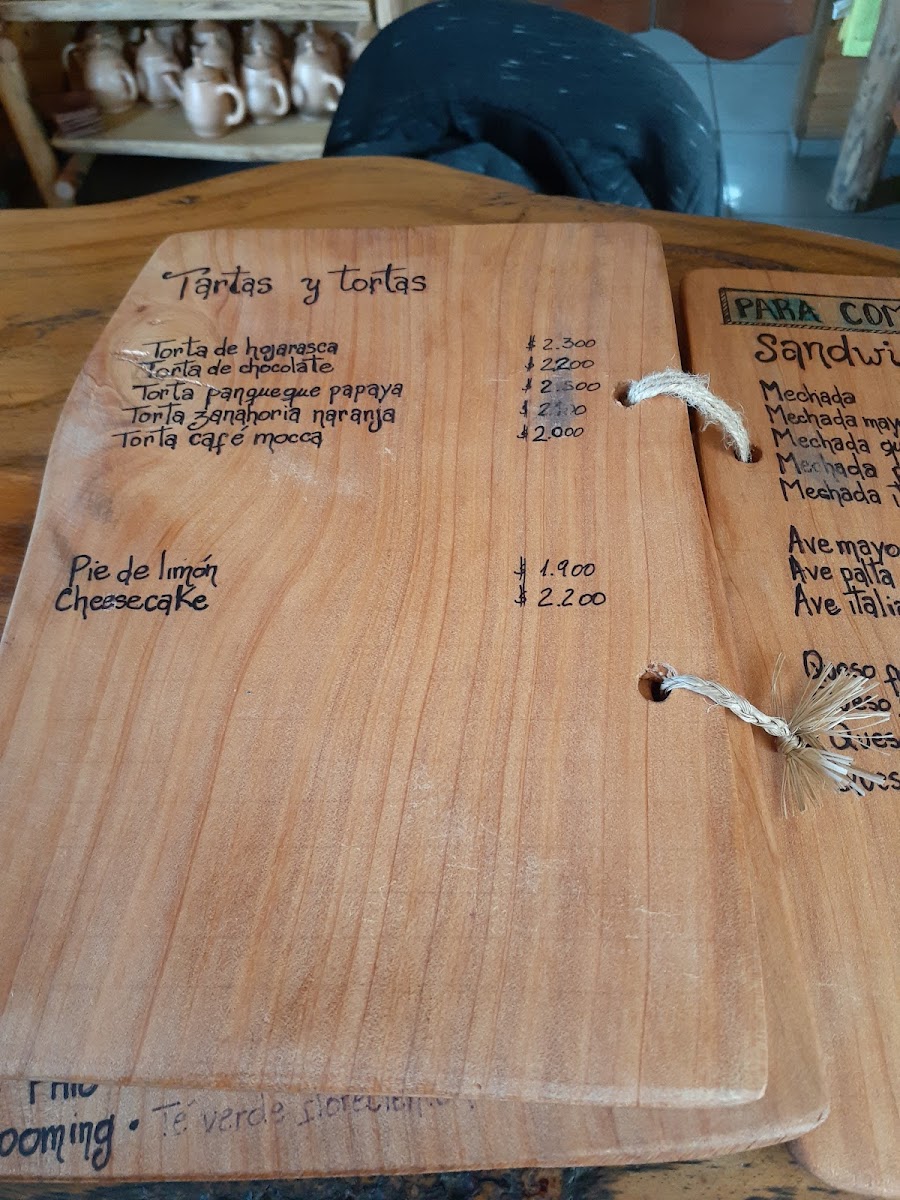 Tartas y tortas
Torta de hojarasca $ 2.300
Torta de chocolate $ 2200
Torta panqueque papaya $ 2.500
Torta zanahoria naranja $
Torta café mocca $ 2.000
Pie de limón $ 1.900
Cheesecake $ 2.200
ooming • Té verde
PARA COM
Sandwi
Mechada
Mechada may
Mechada
Mechada
Mechada
Ave mayo
Ave palta
Ave italia
Queso
ueso
Ques